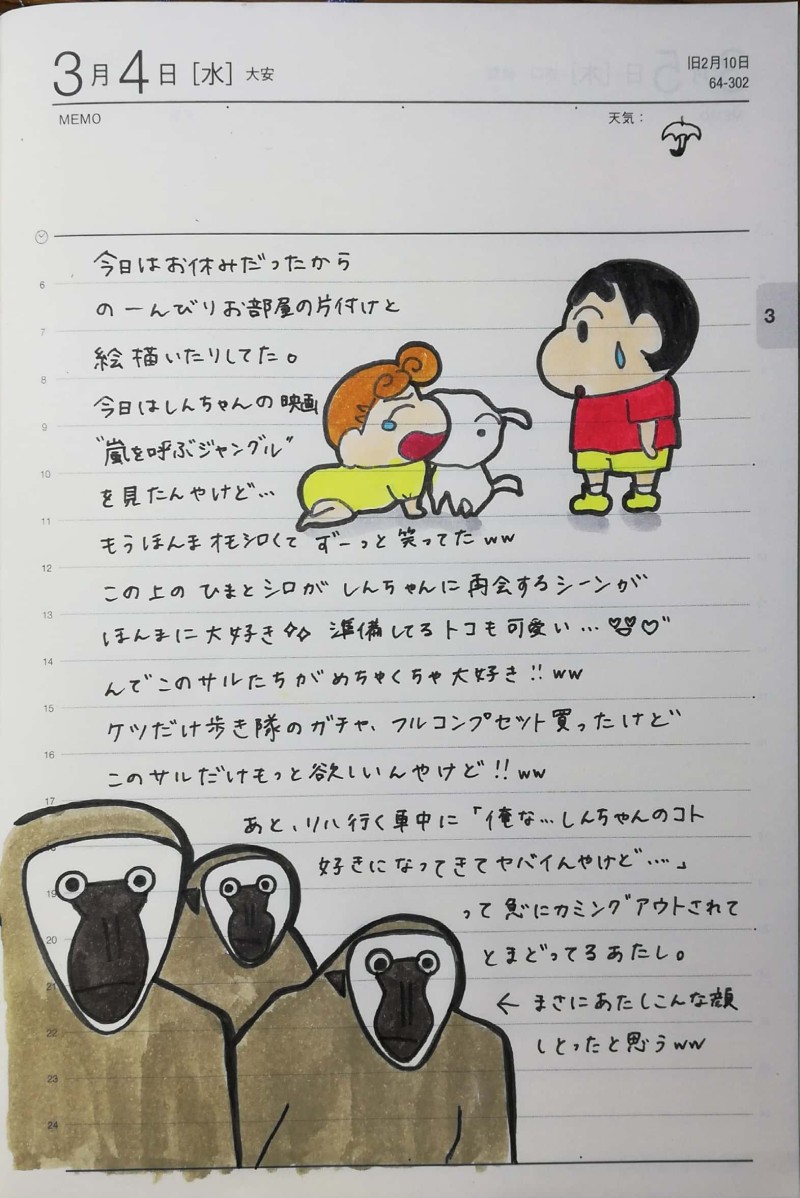 3月4日［水］大安
旧2月10日
64-302
MEMO
天気：
6
今日はお休みだったから
のーんびりお部屋の片付けと
7
絵描いたりしてた。
8
今日はしんちゃんの映画
9
"嵐を呼ぶジャングル"
10
を見たんやけど…
11
もうほんまオモシロくて ずーっと笑ってたww
12
この上の ひまとシロが しんちゃんに再会するシーンが
13
ほんまに大好き 準備してるトコも可愛い…
14
んでこのサルたちがめちゃくちゃ大好き!!ww
15
ケツだけ歩き隊のガチャ、フルコンプセット買ったけど
16
このサルだけもっと欲しいんやけど!!ww
17
あと、リハ行く車中に「俺な…しんちゃんのコト
好きになってきてヤバイんやけど……」
19
って急にカミングアウトされて
20
とまどってるあたし。
21
← まさにあたしこんな顔
22
しとったと思うww
23
24
3